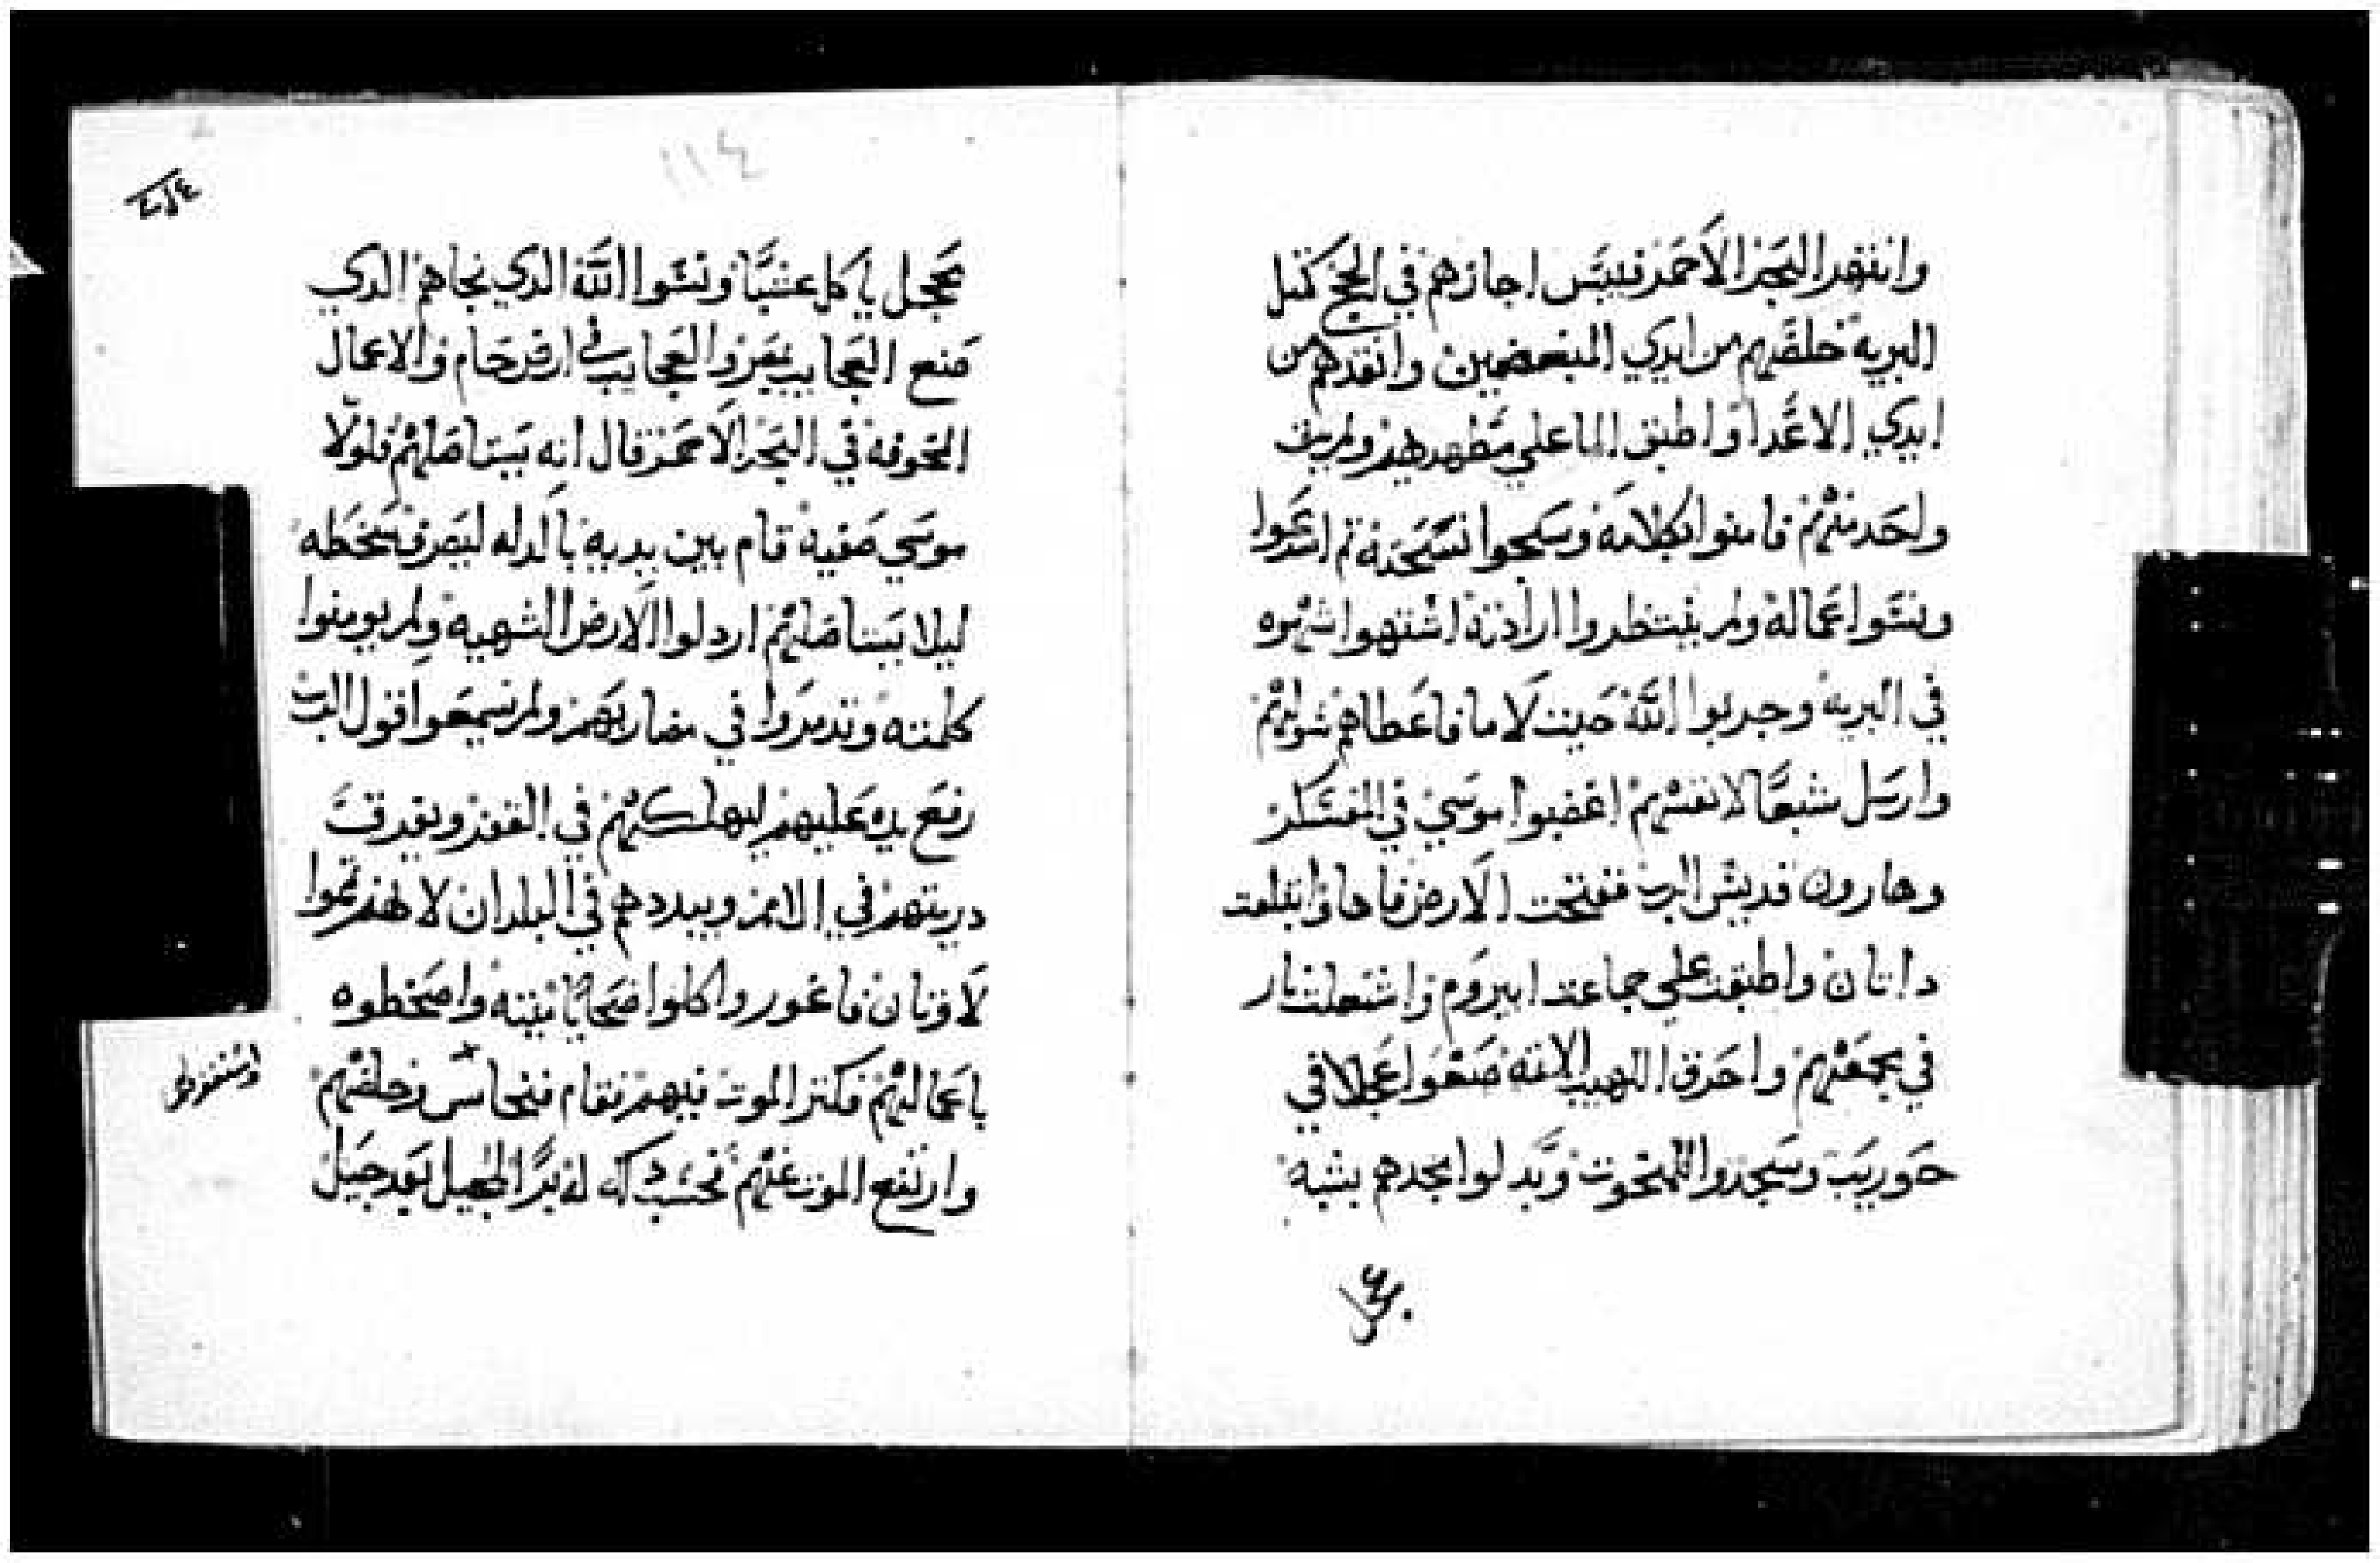 وانتهر البحر الاحمر فيبس اجازهم في اللجج كمثل
البريه خلصهم من ايدي المبغضين وانقدهم من
ايدي الاعدا واطبق الما علي مضطهديهم ولم يبق
واحد منهم فامنوا بكلامه وسبحوا تسبحته تم اسرعوا
ونسوا اعماله ولم ينتظروا ارادته اشتهوا شهوه
في البريه وجربوا الله حيت لا ما فاعطاهم سولهم
وارسل شبعا لانفسهم اغضبوا موسي في المعسكر
وهارون قديس الرب ففتحت الارض فاها وابتلعت
داتان واطبقت علي جماعة ابيروم واشتعلت نار
في مجمعهم واحرق اللهيب الاتمه صنعوا عجلا في
حوريب وسجدوا للمنحوت وبدلوا مجدهم بشبه
١١٤
عجل ياكل عشبا ونسوا الله الدي نجاهم الدي
صنع العجايب بمصر والعجايب في ارض حام والاعمال
المخوفه في البحر الاحمر قال انه يستاصلهم فلولا
موسي صفيه قام بين يديه بالدله ليصرف سخطه
ليلا يستاصلهم اردلوا الارض الشهيه ولم يومنوا
بكلمته وتدمروا في مضاربهم ولم يسمعوا قول الرب
رفع يده عليهم ليهلكهم في القفر ويفرق
دريتهم في الامم ويبددهم في البلدان لانهم تموا
لاوتان فاغور واكلوا ضحايا ميته واسخطوه
باعمالهم فكتر الموت فيهم فقام فنحاس وخلصهم
واستغفر لهم
وارتفع الموت عنهم فحسب دلك له برا لجيل بعد جيل